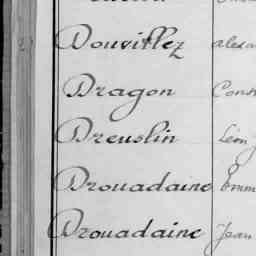 Douvillez
Dragon Cons
Dreuslin Léon
Drouadaine
Drouadaine Jean